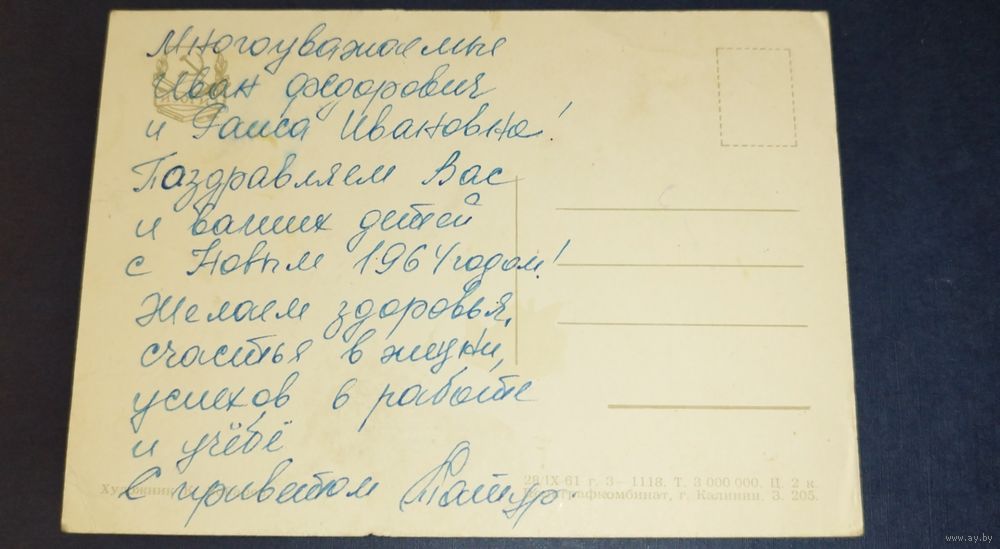 Многоуважаемые
Иван Федорович
и Раиса Ивановна!
Поздравляем Вас
и ваших детей
с Новым 1964 годом!
Желаем здоровья,
счастья в жизни,
успехов в работе
и учёбе
С приветом
Художник
28/IX-61 г. З—1118. Т. 3 000 000. Ц. 2 к.
г. Калинин. З. 205.
www.ay.by